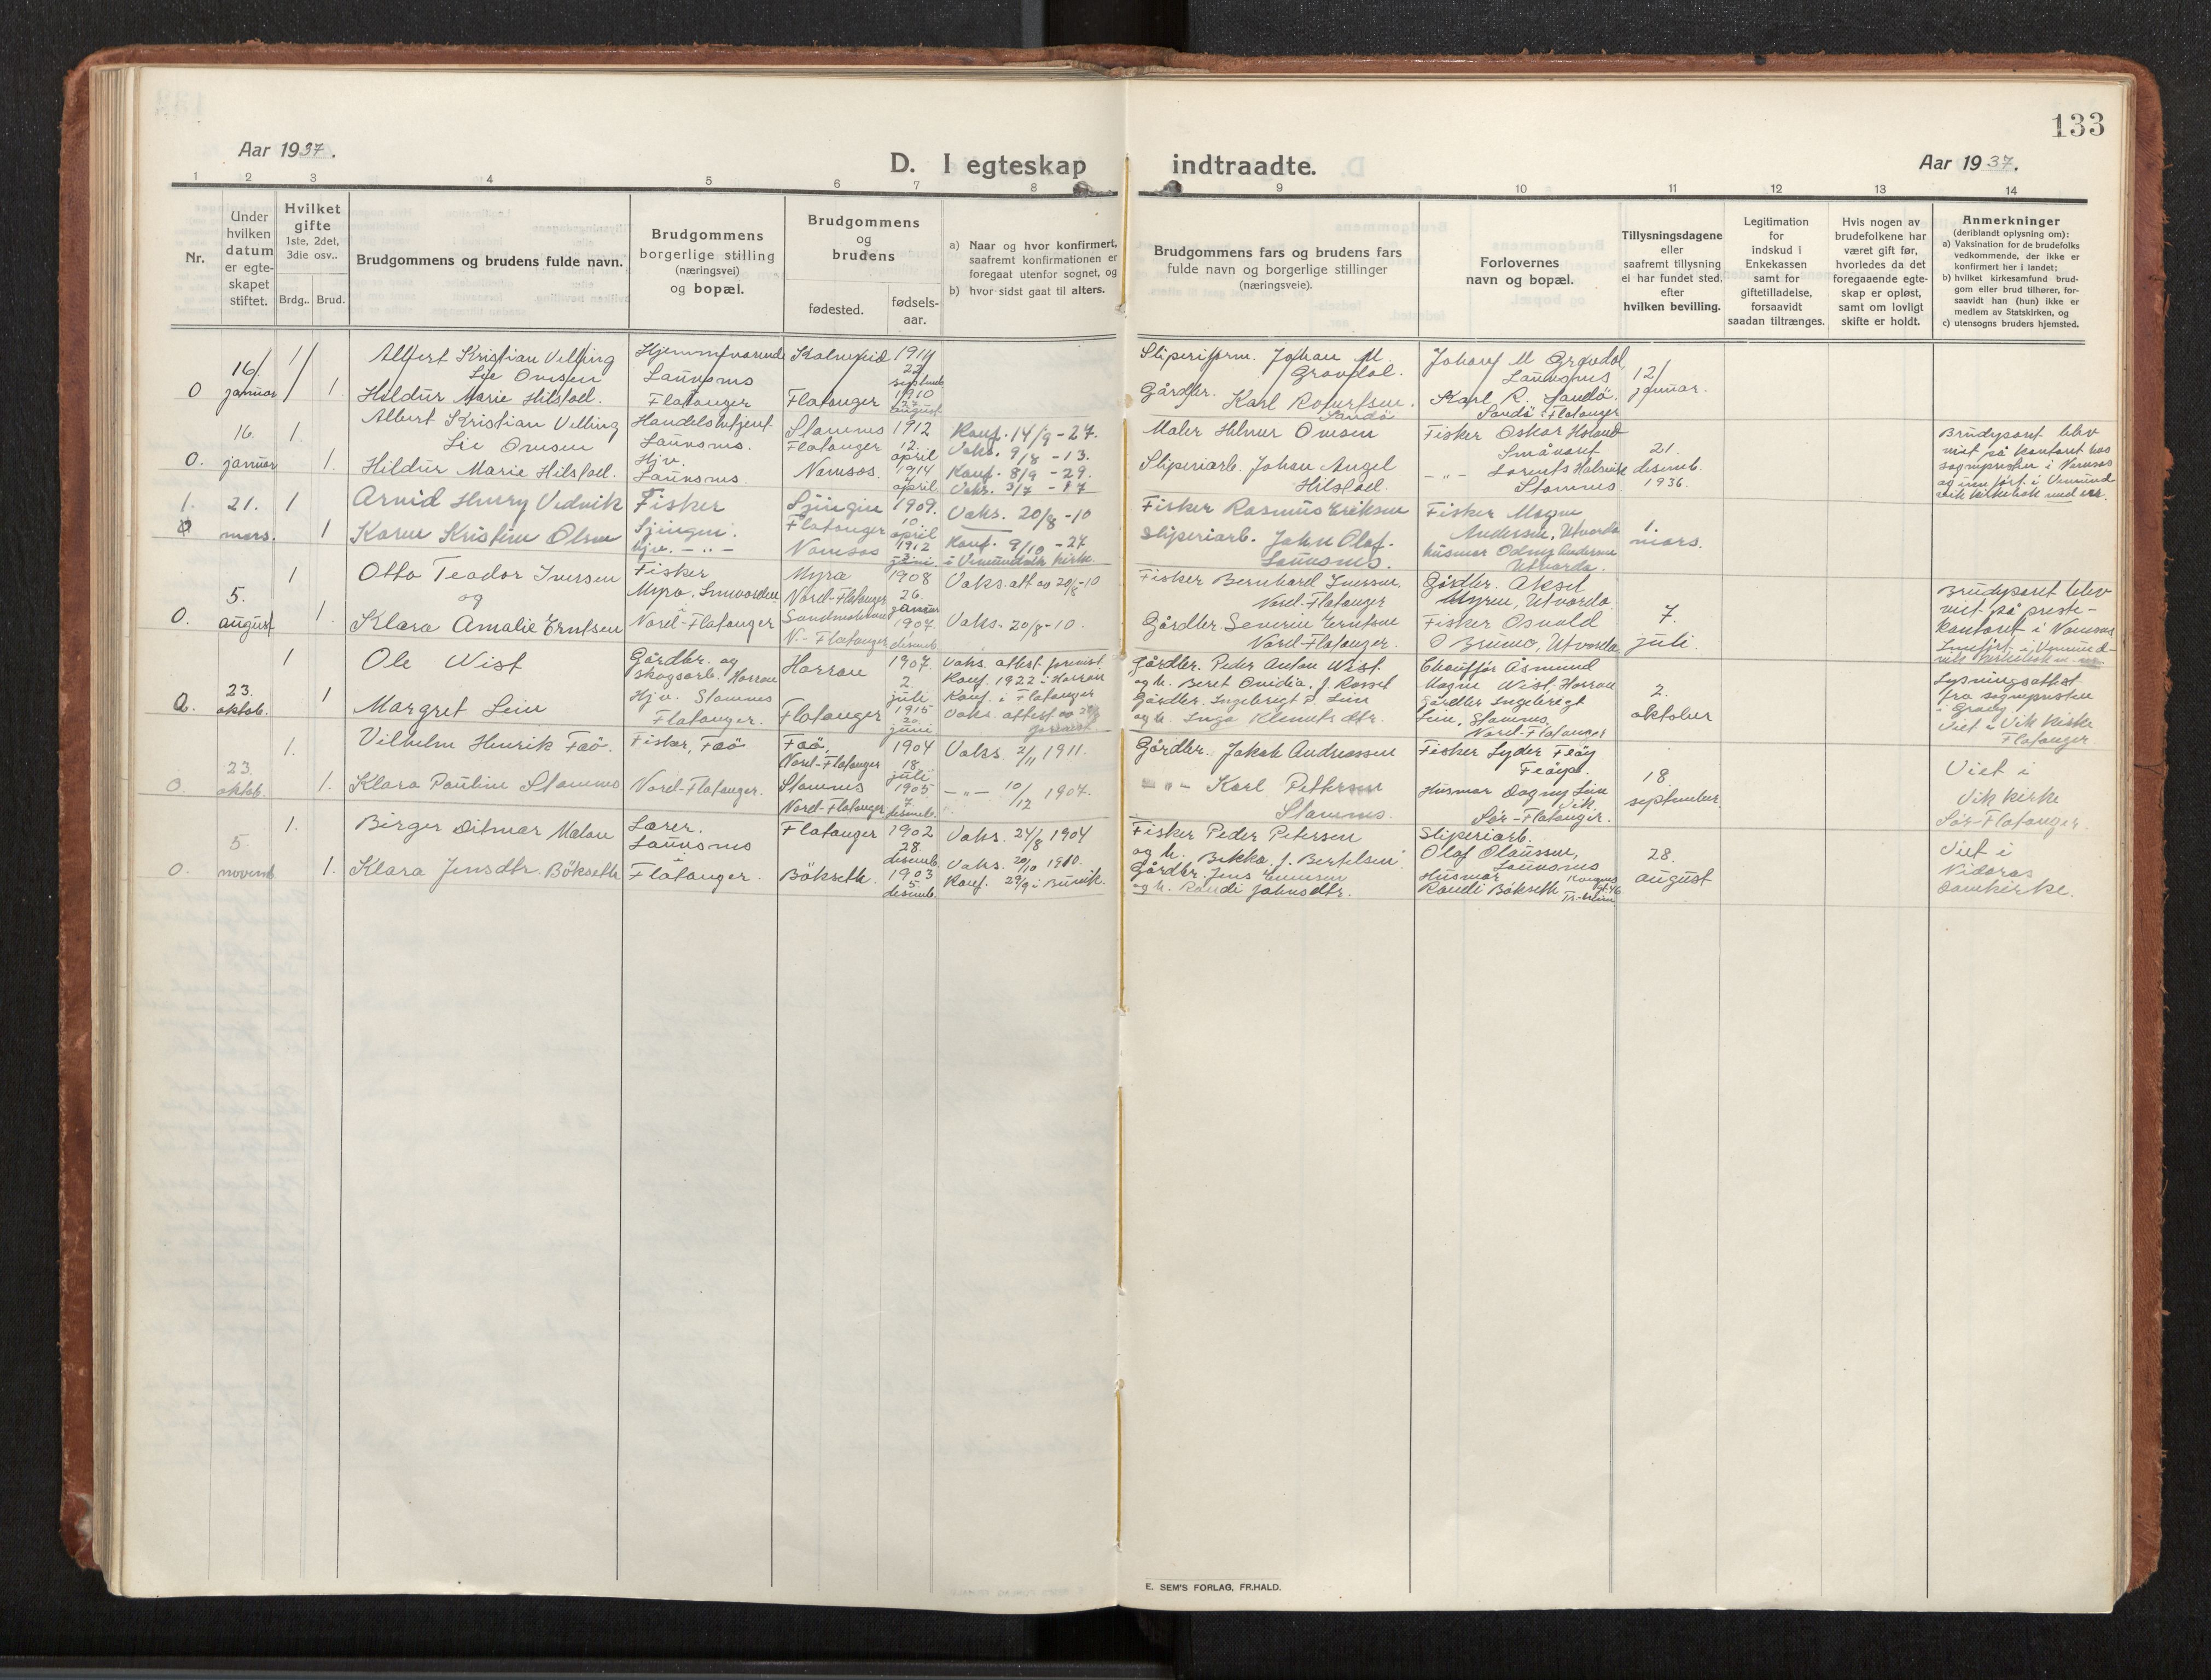 133
Aar 1937.
D. I egteskap indtraadte.
Aar 1937.
1 2 3 4 5 6 7 8 9 10 11 12 13 14
Nr.
Under hvilken datum er egte-skapet stiftet.
Hvilket gifte
1ste, 2det, 3die osv..
Brdg.. Brud.
Brudgommens og brudens fulde navn.
Brudgommens borgerlige stilling (næringsvei) og bopæl.
Brudgommens og brudens
fødested.
fødsels-aar.
a) Naar og hvor konfirmert, saafremt konfirmationen er foregaat utenfor sognet, og
b) hvor sidst gaat til alters.
Brudgommens fars og brudens fars fulde navn og borgerlige stillinger (næringsveie).
Forlovernes navn og bopæl.
Tillysningsdagene eller saafremt tillysning ei har fundet sted. efter hvilken bevilling.
Legitimation for indskud i Enkekassen samt for giftetilladelse, forsaavidt saadan tiltrænges.
Hvis nogen av brudefolkene har været gift før, hvorledes da det foregaaende egte-skap er opløst, samt om lovligt skifte er holdt.
Anmerkninger
(deriblandt oplysning om):
a) Vaksination for de brudefolks vedkommende, der ikke er konfirmert her i landet;
b) hvilket kirkesamfund brud-gom eller brud tilhører, for-saavidt han (hun) ikke er medlem av Statskirken, og
c) utensogns bruders hjemsted.
0 16 januar 1
Albert Kristian Velling
Lie Ovesen
Launsnes
Kalneid 1914
22 septemb
Sliperiform. Johan M. Gravdal.
Johan M Gravdal, Launsnes
12 januar.
1. Hildur Marie Hilstad.
Flatanger
Flatanger 1910
22 august
Gårdbr. Karl Robertsen Sandö
Karl R. Sandö.
Sandö i Flatanger
0. 16. januar 1.
Albert Kristian Velling
Lie Ovesen
Handelsbetjent.
Launsnes.
Stamnes
Flatanger
1912
12. april
Konf. 14/9 - 27.
Vaks. 9/8 - 13.
Maler Hilmer Ovesen
Fisker Oskar Hoiand
Småvært
21. desemb. 1936.
Brudeparet blev
viet på kontoret hos
sogneprester i Namsos
1. Hildur Marie Hilstad.
Hjv.
Launsnes.
Namsos.
1914
april
Konf. 8/9 - 29.
Vaks. 3/7 - 17
Sliperiarb. Johan Angel Hilstad.
- " - Lorents Halsvik
Stamnes
1. 21. mars. 1
Arvid Henry Vedvik
Fisker
Sjingen.
Sjingen
Flatanger
1909.
10. april
Vaks. 20/8 - 10
Fisker Rasmus Eriksen
Fisker Magne
Andersen, Utvorda
1. mars.
1 Karen Kristine Olsen
Hjv. - " -
Namsos
1912
juni
Konf. 9/10 - 27
i Vemundvik kirke.
Sliperiarb. John Olaf-Launsnes.
Husmor Odny Andersen
Utvorda.
0. 5. august 1
Otto Teodor Iversen
og
Fisker
Myra
Nord-Flatanger
1908
26. januar
Vaks.att av 20/8-10
Fisker Bernhard Iversen.
Nord-Flatanger
Gårdbr. Aksel
Myren, Utvorda
7. juli
Brudeparet blev
viet på preste-
kontoret i Namsos
1. Klara Amalie Erntsen
Nord-Flatanger
N.-Flatanger
1907.
desemb.
Vaks. 20/8 - 10.
Gårdbr. Severin Erntsen
Nord-Flatanger.
Fisker Osvald
O Brumo, Utvorda
0. 23. oktob. 1
Ole Wist
Gårdbr. og
skogsarb. Harran
Harran
1907.
2. juli
Vaks. attest forevist.
Konf. 1922 i Harran
Gårdbr. Peder Anton Wist
og h. Beret Ovidia. f. Rosset
Chauffør Åsmund
Magne Wist, Harran
2. oktober
Lysningsattest
fra sognepresten
i Grong.
Viet i Vik kirke
Flatanger
1 Margret Lein
Hjv. Stamnes
Flatanger.
Flatanger
1915
20. juni
Konf. i Flatanger
Vaks. attest av
forevist.
Gårdbr. Ingebrigt P. Lein
og h. Inga Klemetsdtr.
Gårdbr Ingebrigt
Lein, Stamnes,
Nord-Flatanger
0. 23. oktob. 1.
Vilhelm Henrik Faö.
Fisker, Faö
Faö,
Nord-Flatanger
1904
18. juli
Vaks. 2/11 1911.
Gårdbr. Jakob Andreassen
Fisker Lyder Fløy
18. september
Viet i
Vik kirke
Sör-Flatanger.
1. Klara Pauline Stamnes
Nord-Flatanger.
Stamnes
Nord-Flatanger
1905
7. desemb.
- " - 10/12 1907.
- " - Karl Pettersen
Stamnes.
Husmor Dagny Lein
Vik.
Sör-Flatanger.
0. 5 novemb 1.
Birger Ditmar Malau
Lærer.
Launsnes
Flatanger
1902
28. desemb.
Vaks. 24/8 1904
Fisker Peder Petersen
og h. Bekka. f. Bertelsen
Sliperiarb.
Olaf Olaussen,
Launsnes
28. august
Viet i
Nidaros
Domkirke.
1. Klara Jensdtr. Bökseth
Flatanger.
Bökseth.
1903
5 desemb.
Vaks. 20/10 1910.
Konf. 29/9 i Buvik.
Gårdbr. Jens
og h. Randi Johnsdtr.
Husmor
Randi Bökseth
E. SEM'S FORLAG, FR.HALD.